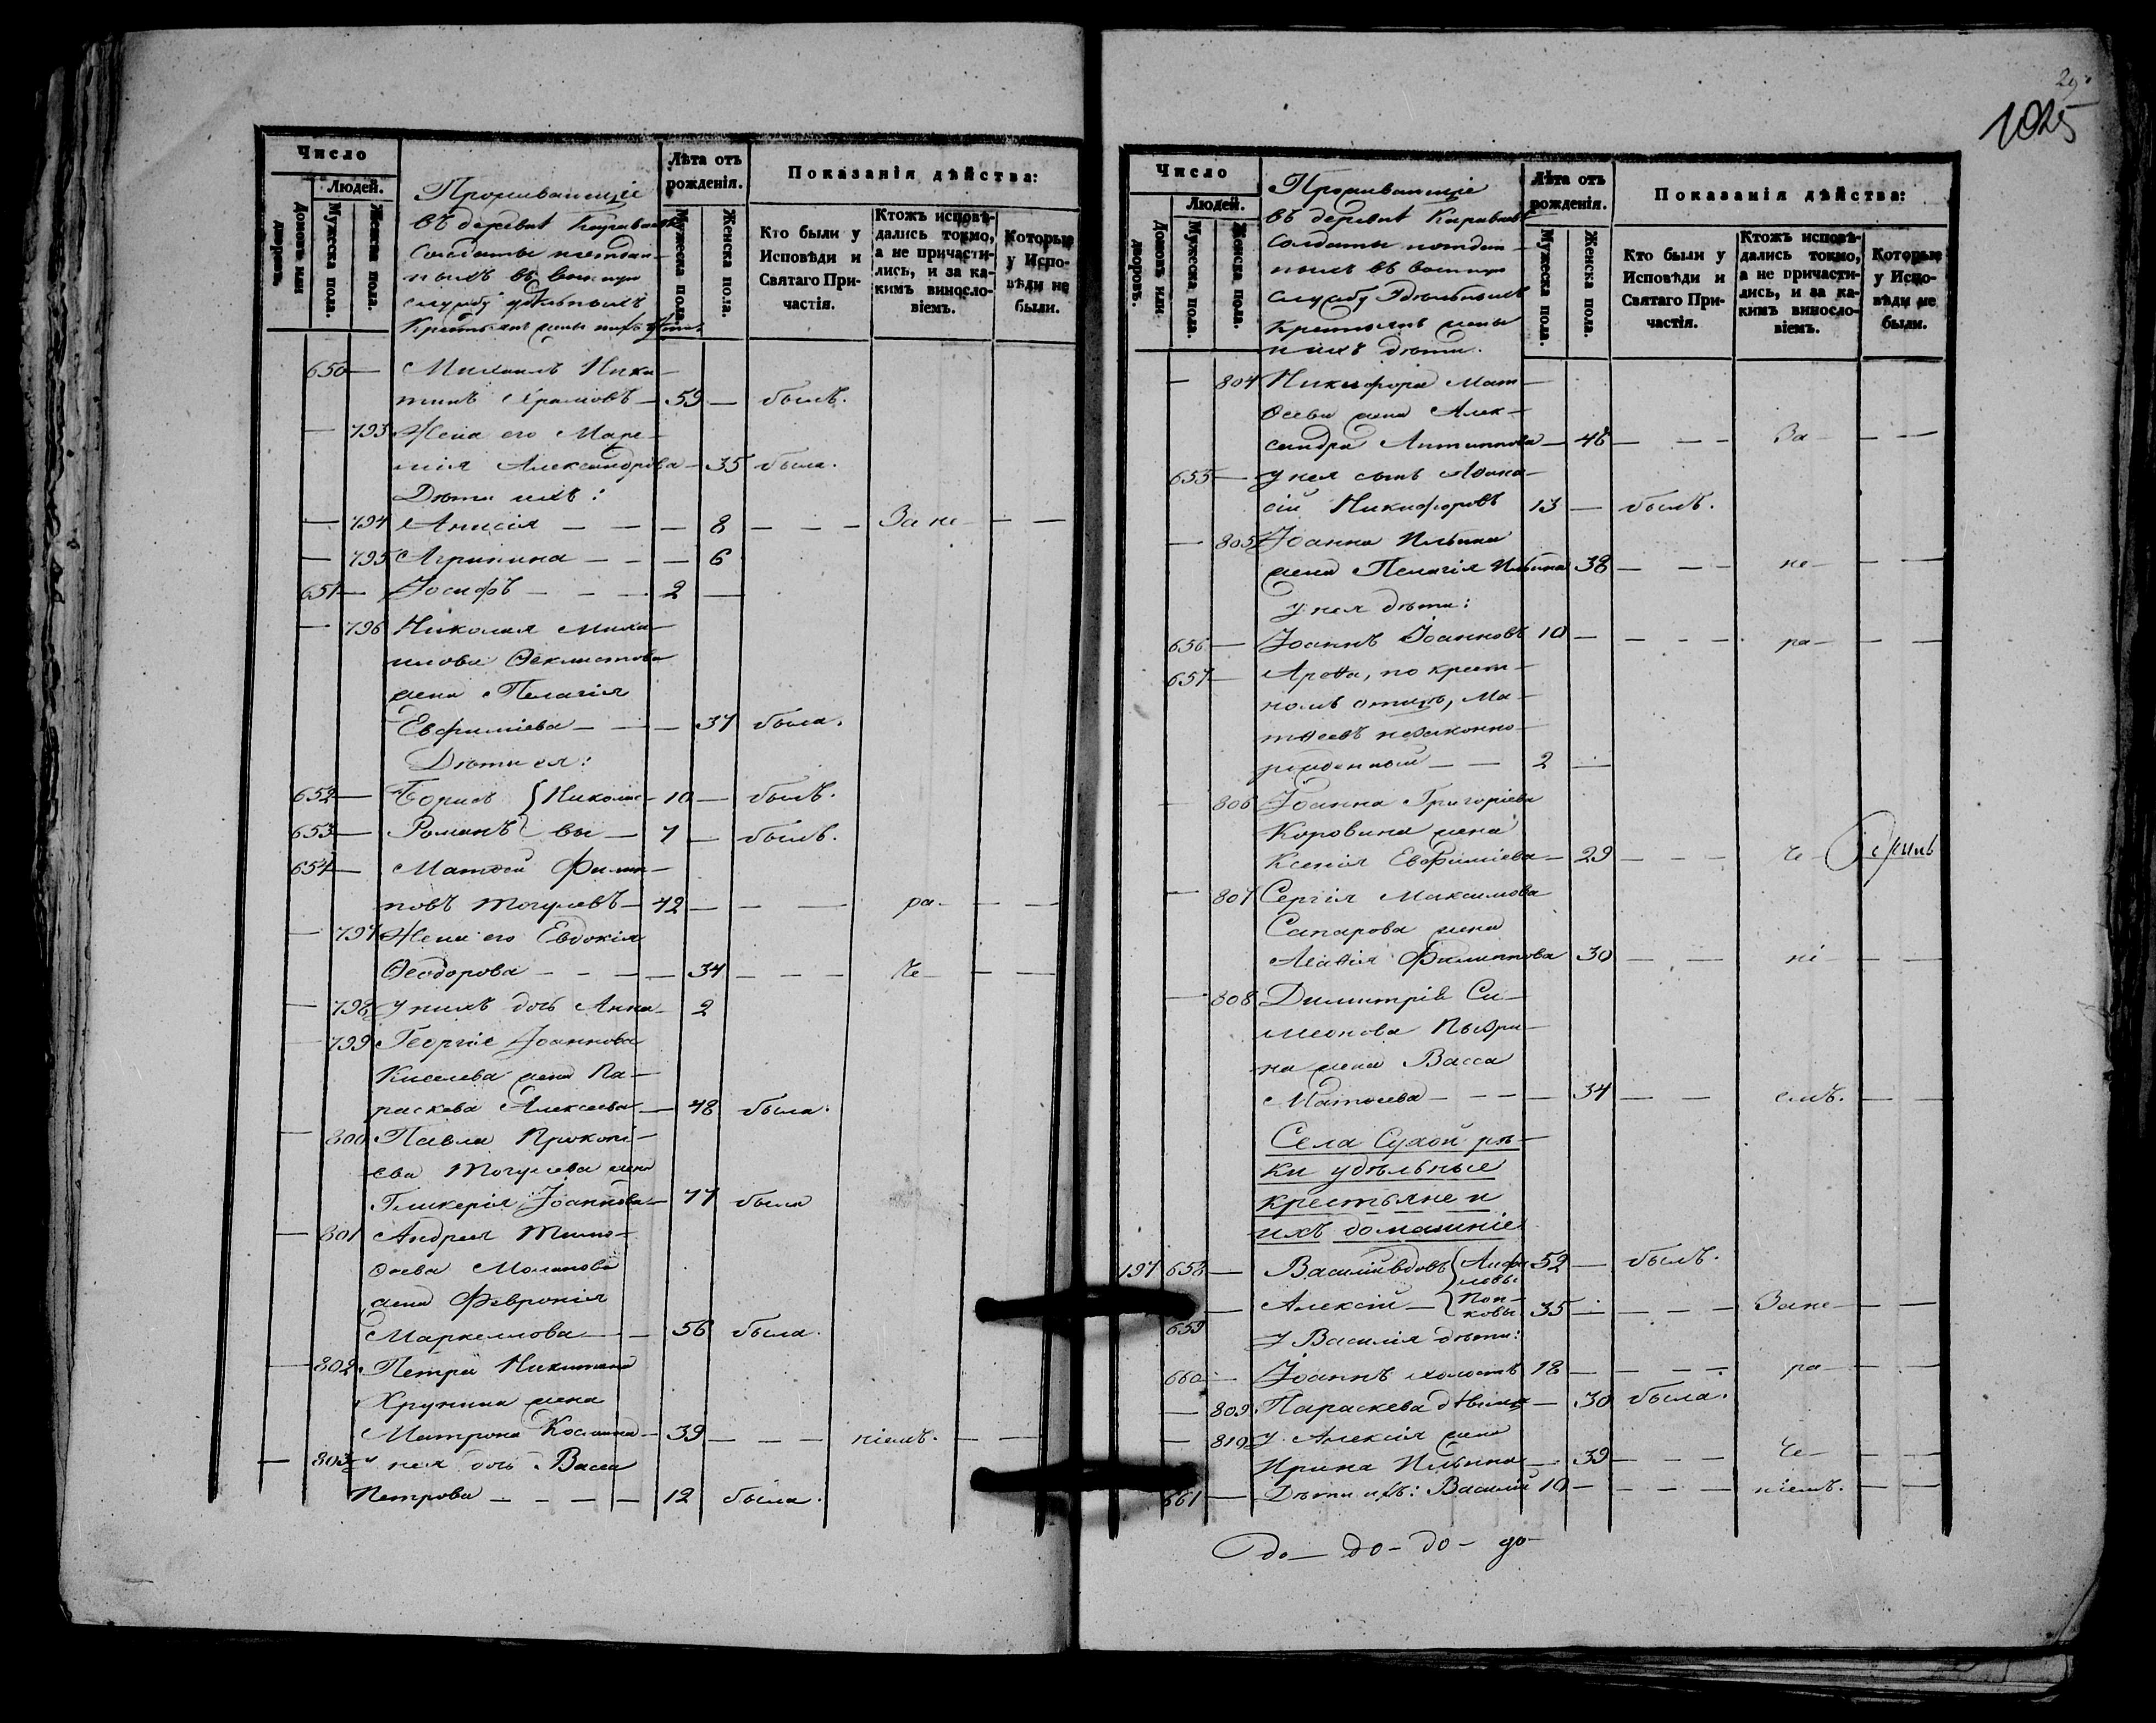 Число
Людей.
Домовъ или дворовъ.
Мужеска пола.
Женска пола.
Проживающіе
въ деревнѣ
солдаты изъ отдан-
ныхъ въ военную
службу удѣльныхъ
Крестьянъ жены ихъ и дѣти
Лѣта отъ рожденія.
Мужеска пола.
Женска пола.
Показанія дѣйства:
Кто были у Исповѣди и Святаго При-частія.
Ктожъ исповѣ-дались токмо, а не причасти-лись, и за ка-кимъ винословіемъ.
Которые у Испо-вѣди не были.
650 — Михаилъ Ники-
тинъ Храмовъ — 59 — былъ.
— 793 Жена его Мари-
Александрова — 35 была.
Дѣти ихъ:
— 794 Анисія — — — 8 — — — За не — — —
— 795 Агрипина — — — 6
651 — Іосифъ — — — 2 —
— 796 Николая Миха-
илова Феклистова
жена Пелагія
Евфиміева — — — 37 была.
Дѣти ея:
652 — Борисъ { Никола- 10 — былъ.
653 — Романъ { вы — 7 — былъ.
654 — Матѳей Филип-
повъ — 42 — — — ра — — —
— 797 Жена его Евдокія
Ѳеодорова — — — — 34 — — — че — — —
— 798 У нихъ дочь Анна — 2
799 Георгія Іоаннова
Киселева жена Па-
раскева Алексѣева — 48 была.
— 800 Павла Прокопі-
ева жена
Гликерія Іоаннова — 47 была
— 801 Андрея Тимо-
ѳеева
жена Февронія
Маркеллова — — 56 была.
— 802 Петра Никитина
Хрунина жена
Матрона Косьмина — 39 — — — ніемъ. — —
— 803 У нея дочь Васса
Петрова — — — — 12 была.
1025
Число
Людей.
Домовъ или дворовъ.
Мужеска пола.
Женска пола.
Проживающіе
въ деревнѣ
солдаты изъ отдан-
ныхъ въ военную
службу Удѣльныхъ
крестьянъ жены
и ихъ дѣти.
Лѣта отъ рожденія.
Мужеска пола.
Женска пола.
Показанія дѣйства:
Кто были у Исповѣди и Святаго При-частія.
Ктожъ исповѣ-дались токмо, а не причасти-лись, и за ка-кимъ винословіемъ.
Которые у Испо-вѣди не были.
— 804 Никифора Мат-
ѳеева жена Алек-
сандра Антиппова — 48 — — — За — — —
655 — У нея сынъ Аѳана-
сій Никифоровъ 13 — былъ.
— 805 Іоанна Ильина
жена Пелагія Ильина 38 — — — не — — —
У нея дѣти:
656 — Іоаннъ Іоанновъ 10 — — — — ра — — —
657 — Ареѳа, по крест-
номъ отцѣ, Ма-
тѳеевъ незаконно-
рожденный — — 2 —
— 806 Іоанна Григоріева
Коровина жена
Ксенія Евфиміева — 29 — — — че —
— 807 Сергія Максимова
Сапарова жена
Агаѳія Филиппова 30 — — ні — — —
— 808 Димитрія Си-
меонова
жена Васса
Матѳеева — — — 34 — — емъ. — —
Села Сухой рѣ-
ки удѣльные
крестьяне и
ихъ домашніе
197 658 — Василій вдовъ { 52 — былъ.
659 — Алексій — { Поп-
ковы 35 — — — — За не — — —
У Василія дѣти:
660 — Іоаннъ холостъ 18 — — — — ра — — —
— 809 Параскева дѣвица — 30 была.
— 810 У Алексія жена
Ирина Ильина — 39 — — — че — — —
661 — Дѣти ихъ: Василій 10 — — — — ніемъ. — —
до — до — до — до —